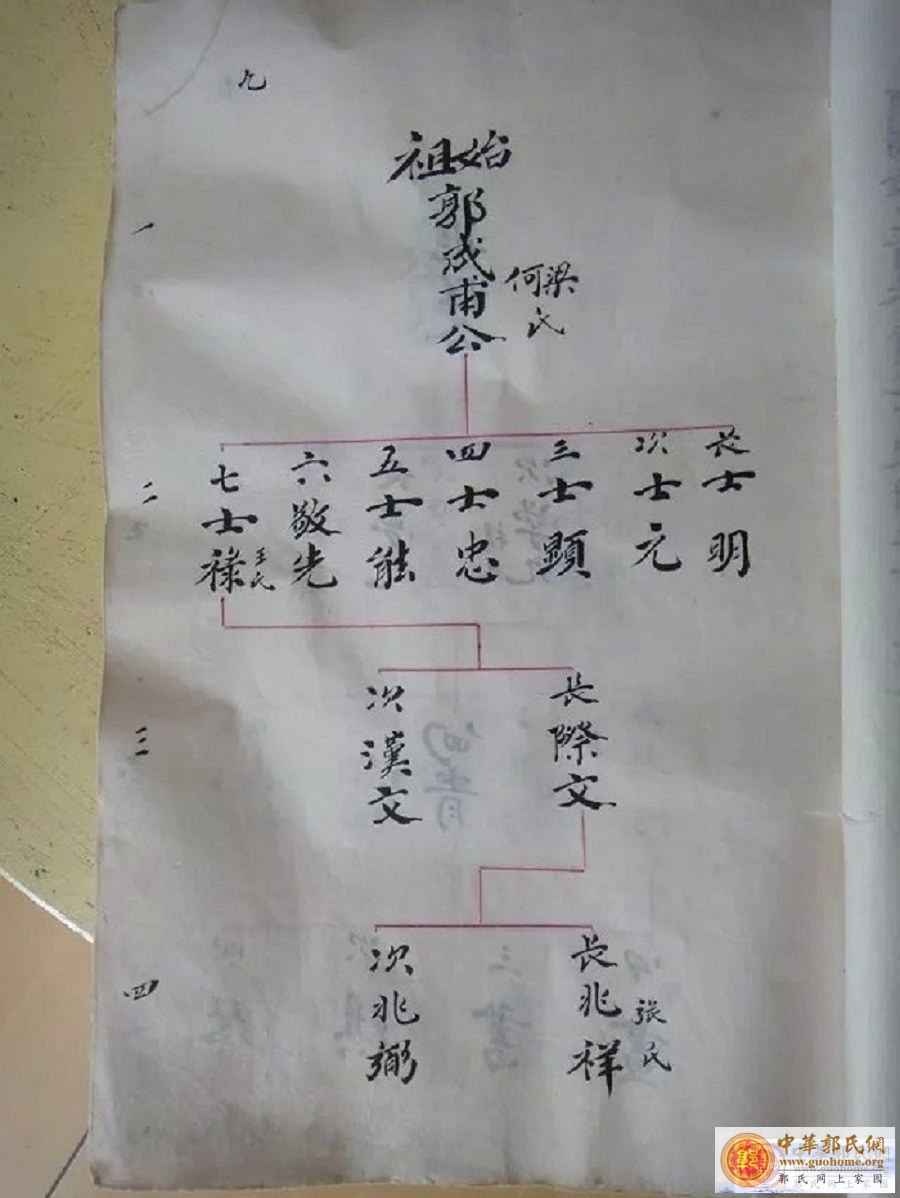 九
始祖
郭成甫公
梁何氏
一
長士明
次士元
三士顯
四士忠
五士能
六敬光
七士祿
王氏
二
長際文
次漢文
三
長兆祥
張氏
次兆弼
四
中華郭氏網
www.guohome.org
郭氏网上家园